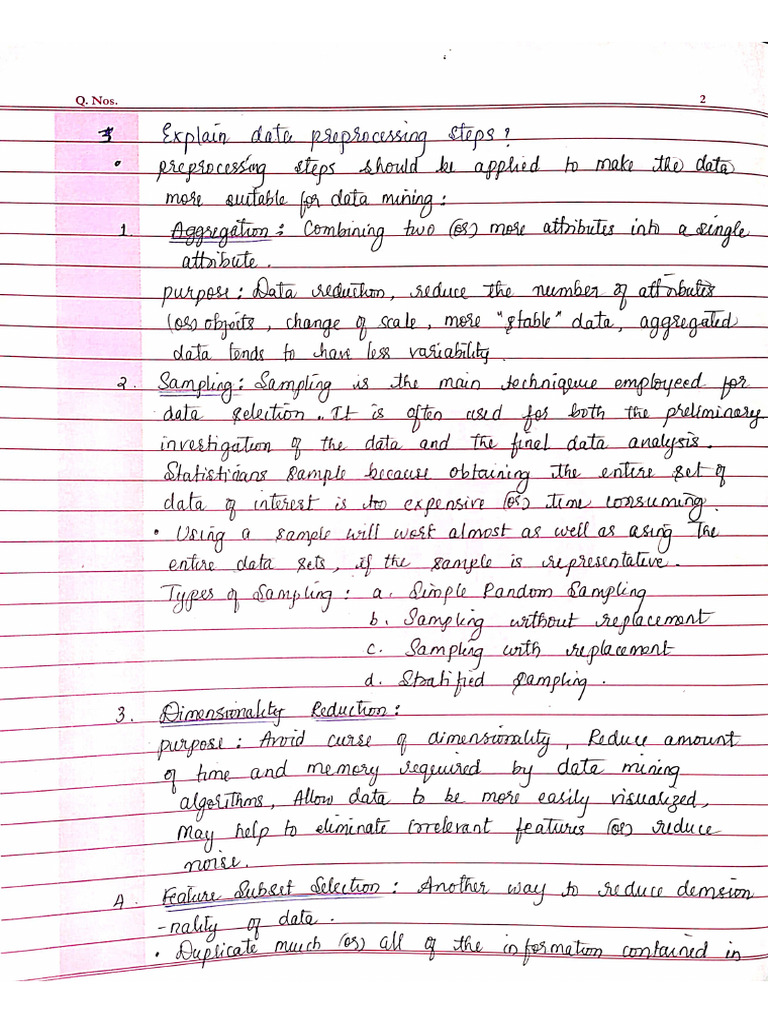 Q. Nos. 2
Explain data preprocessing steps?
• preprocessing steps should be applied to make the data
more suitable for data mining:
1. Aggregation: Combining two (or) more attributes into a single
attribute.
purpose: Data reduction, reduce the number of attributes
(or) objects, change of scale, more "stable" data, aggregated
data tends to have less variability.
2. Sampling: Sampling is the main technique employeed for
data selection. It is often used for both the preliminary
investigation of the data and the final data analysis.
Statisticians sample because obtaining the entire set of
data of interest is too expensive (or) time consuming.
• Using a sample will work almost as well as using the
entire data sets, if the sample is representative.
Types of Sampling: a. Simple Random Sampling
b. Sampling without replacement
c. Sampling with replacement
d. Stratified Sampling.
3. Dimensionality Reduction:
purpose: Avoid curse of dimensionality, Reduce amount
of time and memory required by data mining
algorithms, Allow data to be more easily visualized,
may help to eliminate irrelevant features (or) reduce
noise.
4. Feature Subset Selection: Another way to reduce demension
-nality of data.
• Duplicate much (or) all of the information contained in